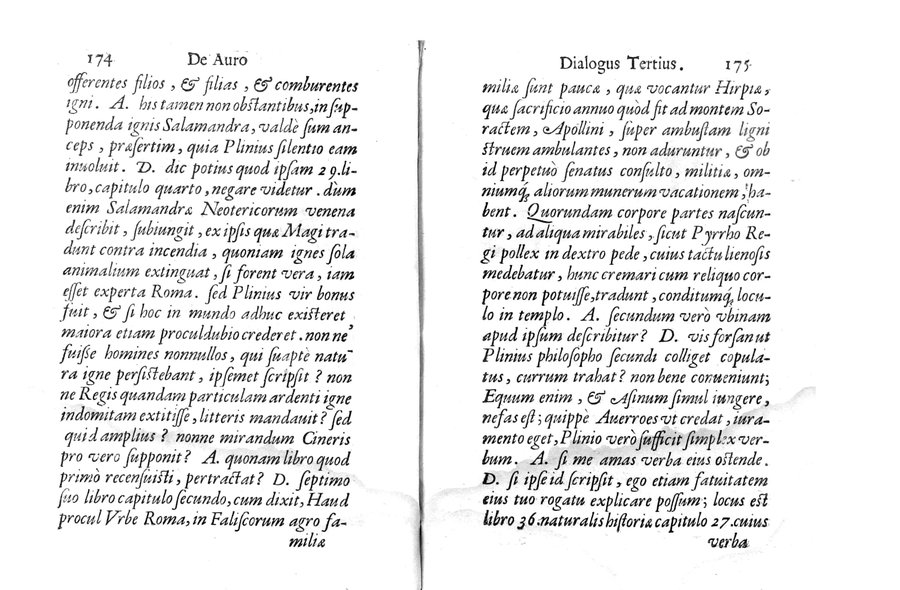 174 De Auro
offerentes filios, & filias, & comburentes
igni. A. his tamen non obstantibus, in sup-
ponenda ignis Salamandra, valdè sum an-
ceps, præsertim, quia Plinius silentio eam
inuoluit. D. dic potius quod ipsam 29. li-
bro, capitulo quarto, negare videtur. dum
enim Salamandræ Neotericorum venena
describit, subiungit, ex ipsis quæ Magi tra-
dunt contra incendia, quoniam ignes sola
animalium extinguat, si forent vera, iam
esset experta Roma. sed Plinius vir bonus
fuit, & si hoc in mundo adhuc existeret
maiora etiam proculdubio crederet. non ne'
fuisse homines nonnullos, qui suaptè natu-
ra igne persistebant, ipsemet scripsit? non
ne Regis quandam particulam ardenti igne
indomitam extitisse, litteris mandauit? sed
quid amplius? nonne mirandum Cineris
pro vero supponit? A. quonam libro quod
primò recensuisti, pertractat? D. septimo
suo libro capitulo secundo, cum dixit, Haud
procul Vrbe Roma, in Faliscorum agro fa-
miliæ
Dialogus Tertius. 175
miliæ sunt paucæ, quæ vocantur Hirpiæ,
quæ sacrificio annuo quòd fit ad montem So-
ractem, Apollini, super ambustam ligni
struem ambulantes, non aduruntur, & ob
id perpetuò senatus consulto, militiæ, om-
niumq́; aliorum munerum vacationem, ha-
bent. Quorundam corpore partes nascun-
tur, ad aliqua mirabiles, sicut Pyrrho Re-
gi pollex in dextro pede, cuius tactu lienosis
medebatur, hunc cremari cum reliquo cor-
pore non potuisse, tradunt, conditumq́; locu-
lo in templo. A. secundum verò vbinam
apud ipsum describitur? D. vis forsan ut
Plinius philosopho secundi colliget copula-
tus, currum trahat? non bene conueniunt;
Equum enim, & Asinum simul iungere,
nefas est; quippè Auerroes vt credat, iura-
mento eget, Plinio verò sufficit simplex ver-
bum. A. si me amas verba eius ostende.
D. si ipse id scripsit, ego etiam fatuitatem
eius tuo rogatu explicare possum; locus est
libro 36. naturalis historiæ capitulo 27. cuius
verba